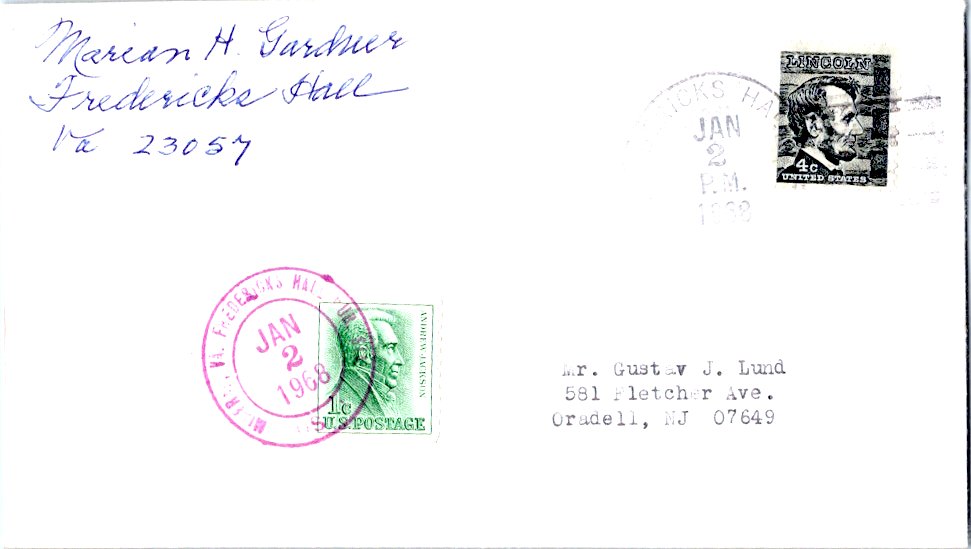 Marian H. Gardner
Fredericks Hall
Va 23057
HA
JAN
2
P.M.
1968
LINCOLN
4c
UNITED STATES
VA. FREDERICKS HALL RUR.
JAN
2
1968
ANDREW JACKSON
1c
U.S. POSTAGE
Mr. Gustav J. Lund
581 Fletcher Ave.
Oradell, NJ 07649